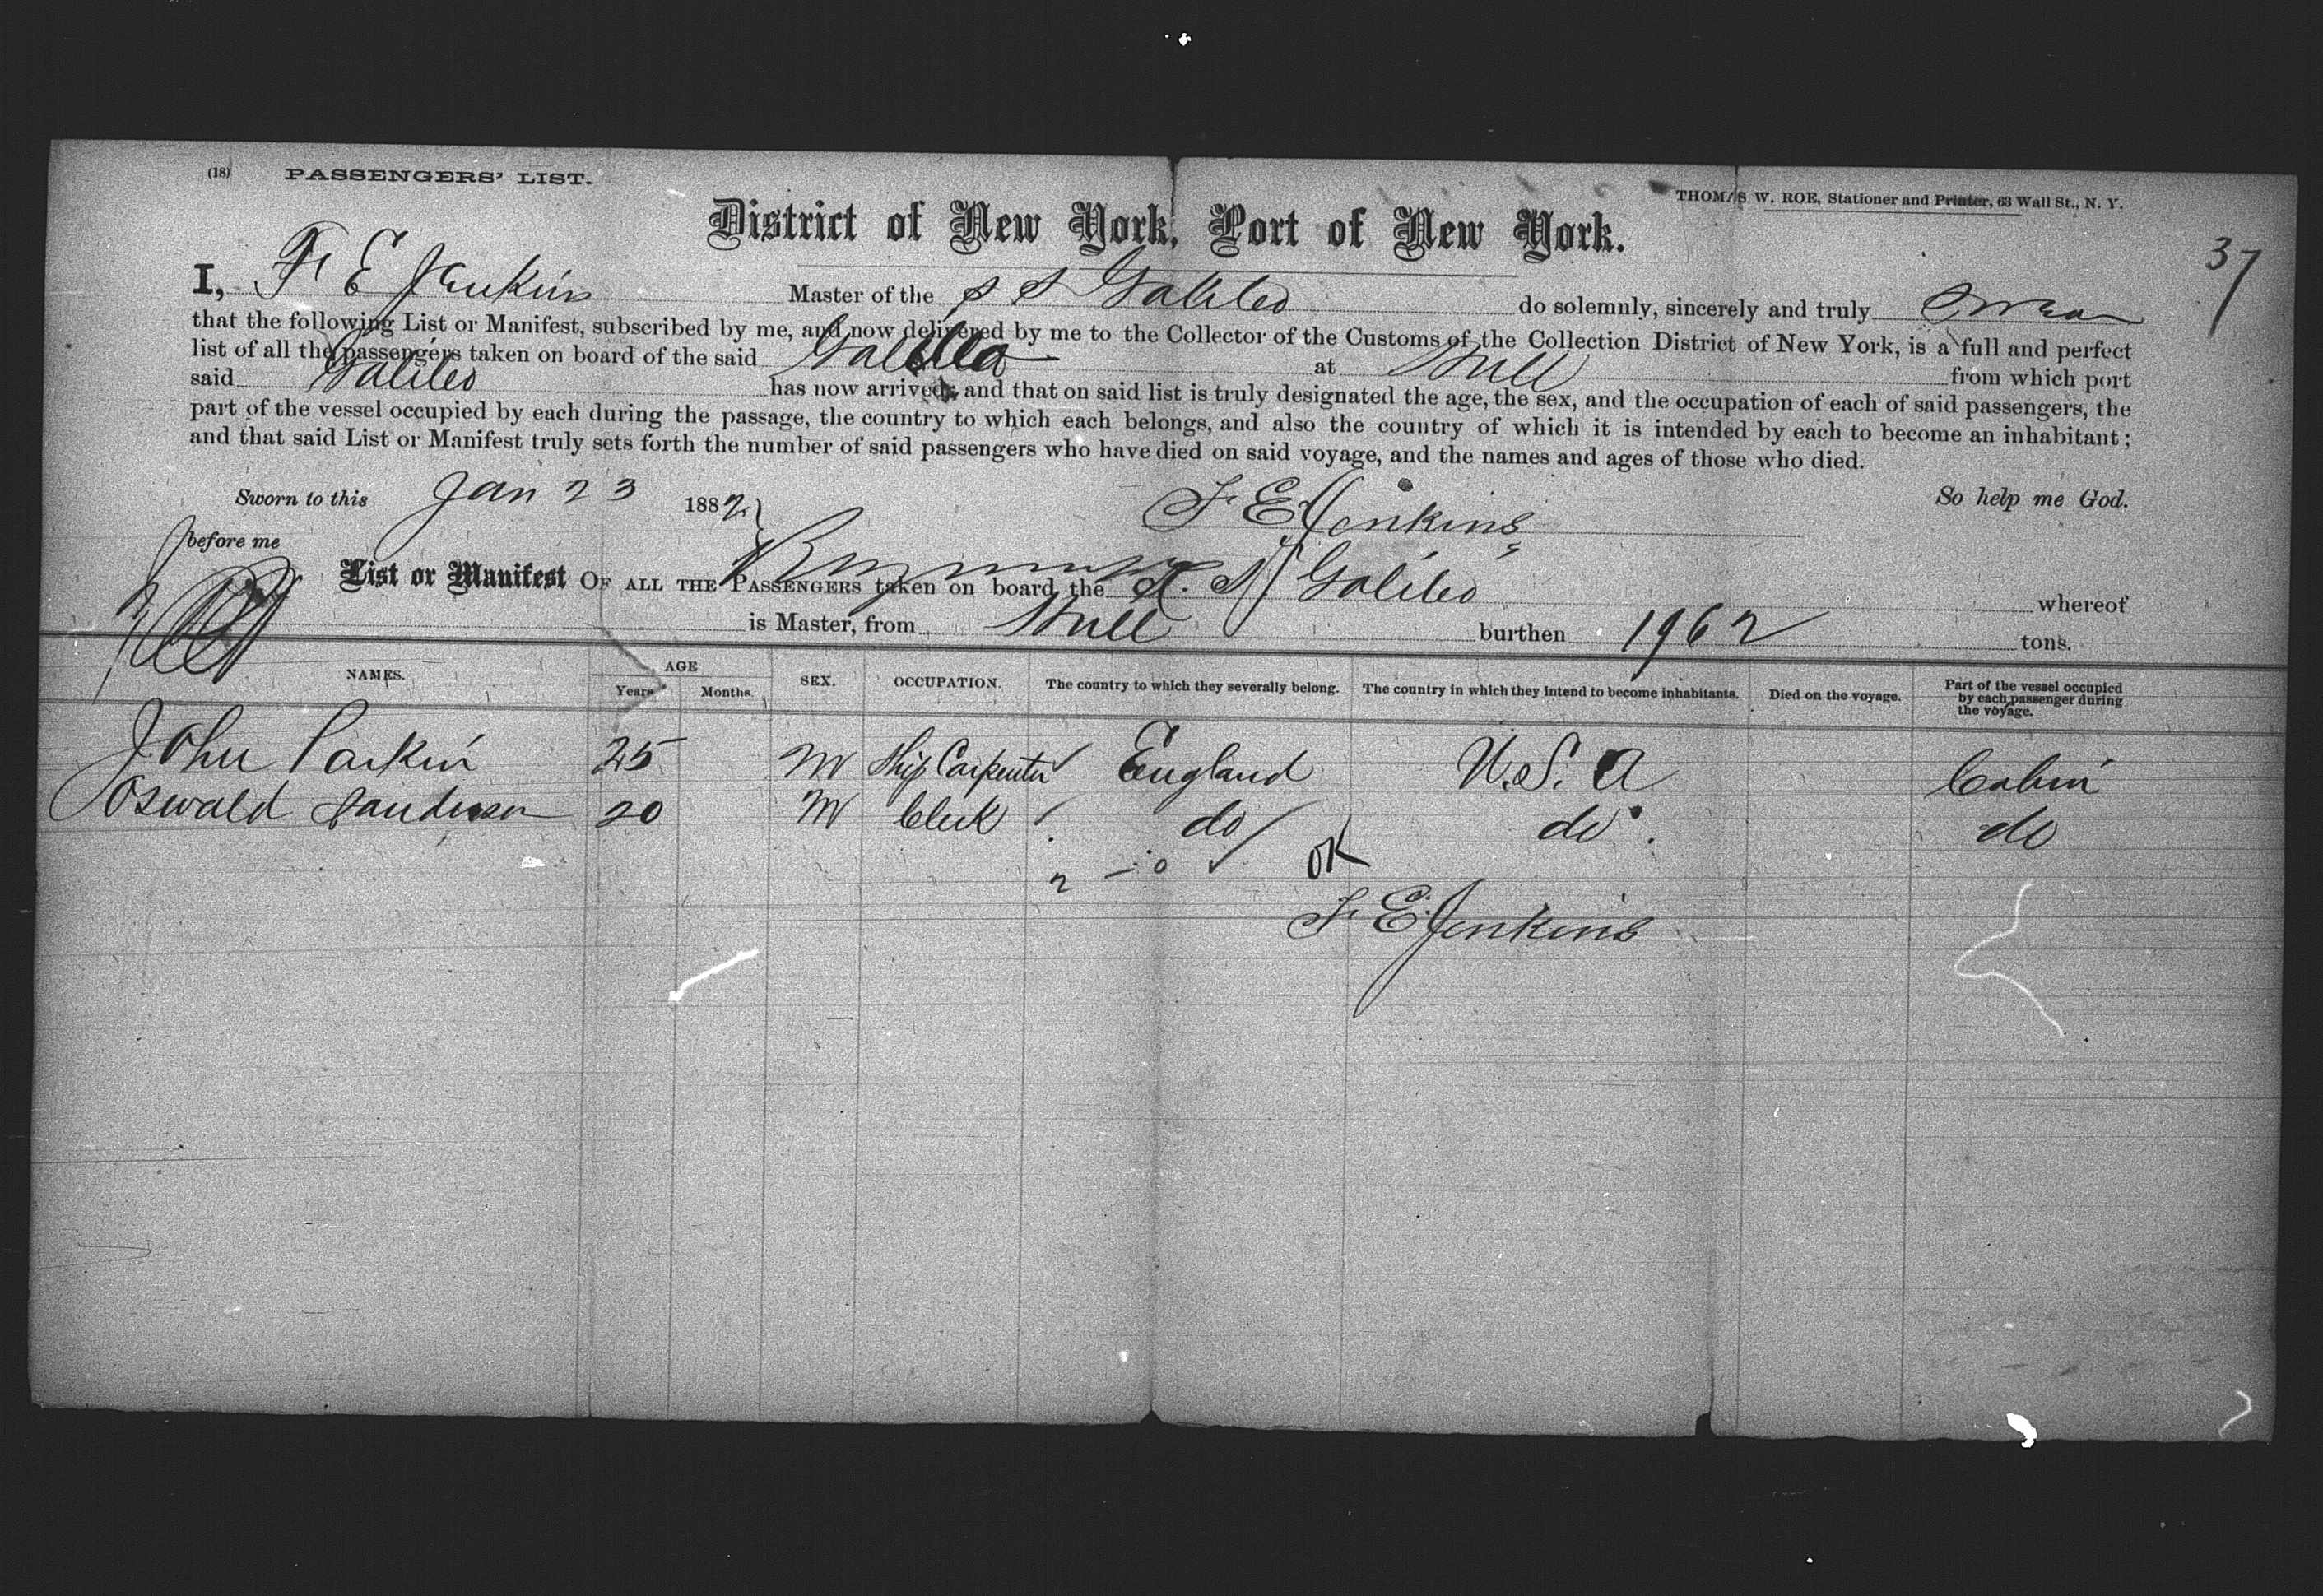 (18) PASSENGERS' LIST.
THOMAS W. ROE, Stationer and Printer, 63 Wall St., N. Y.
District of New York, Port of New York.
37
I, F. E Jenkins Master of the S S Galileo do solemnly, sincerely and truly Swear
that the following List or Manifest, subscribed by me, and now delivered by me to the Collector of the Customs of the Collection District of New York, is a full and perfect
list of all the passengers taken on board of the said Galileo at Hull from which port
said Galileo has now arrived; and that on said list is truly designated the age, the sex, and the occupation of each of said passengers, the
part of the vessel occupied by each during the passage, the country to which each belongs, and also the country of which it is intended by each to become an inhabitant;
and that said List or Manifest truly sets forth the number of said passengers who have died on said voyage, and the names and ages of those who died.
Sworn to this Jan 23 1882 So help me God.
F. E Jenkins
before me
List or Manifest OF ALL THE PASSENGERS taken on board the S. S Galileo whereof
is Master, from Hull burthen 1962 tons.
NAMES. AGE Years Months. SEX. OCCUPATION. The country to which they severally belong. The country in which they intend to become inhabitants. Died on the voyage. Part of the vessel occupied by each passenger during the voyage.
John Parkin 25 M Ship Carpenter England U.S.A Cabin
Oswald Sanderson 20 M Clerk do do do
2 OK
F. E Jenkins